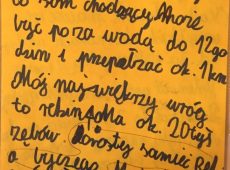 to sam chodzący Może
być poza wodą do 12go
dzin i przepełzać ok. 1km
Mój największy wróg
to rekin Ma ok. 20tyś
zębów. Dorosły samiec